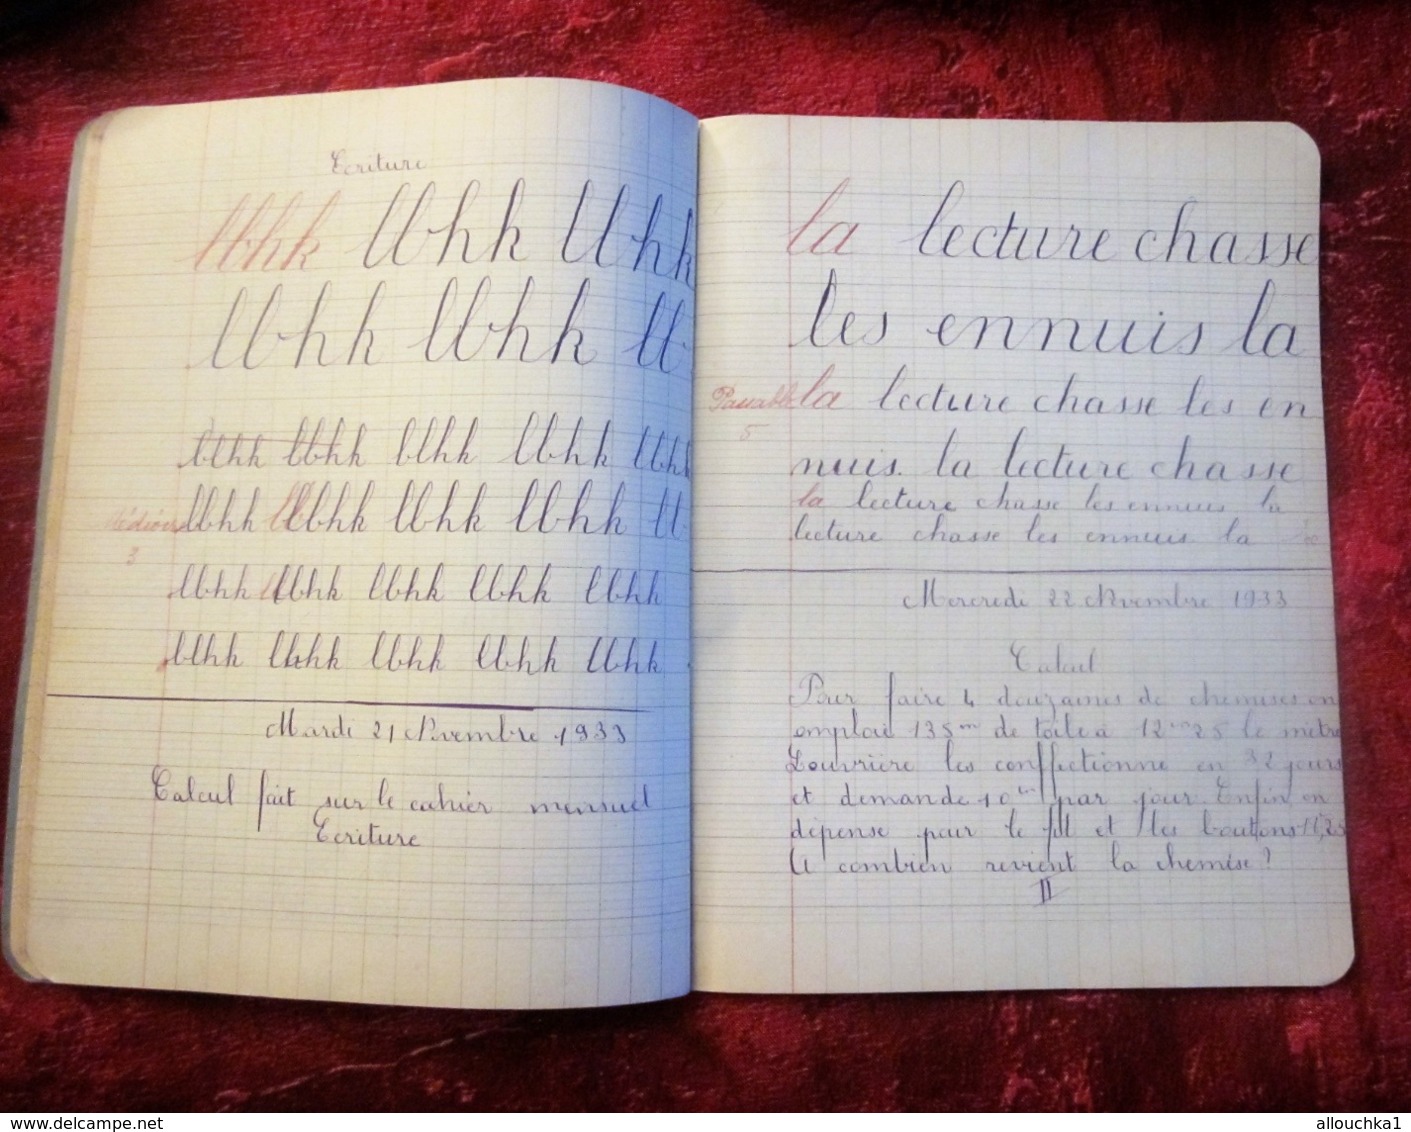 Ecriture
llbhk llbhk llbhk
llbhk llbhk ll
blhk llbhk blhk llbhk llbhk
llbhk ll llbhk llbhk llbhk ll
Médiocre
3
llbhk ll llbhk llbhk llbhk llbhk
blhk llbhk llbhk llbhk llbhk
Mardi 21 Novembre 1933
Calcul fait sur le cahier mensuel
Ecriture
la lecture chasse
les ennuis la
Passable la lecture chasse les en
5
nuis. la lecture chasse
la lecture chasse les ennuis la
lecture chasse les ennuis la
Mercredi 22 Novembre 1933
Calcul
Pour faire 4 douzaines de chemises on
emploie 135m de toile à 12 25 le mètre
L'ouvrière les conffectionne en 32 jours
et demande 10 par jour. Enfin on
dépense pour le fil et les boutons 11,25
A combien revient la chemise ?
II
www.delcampe.net
allouchka1